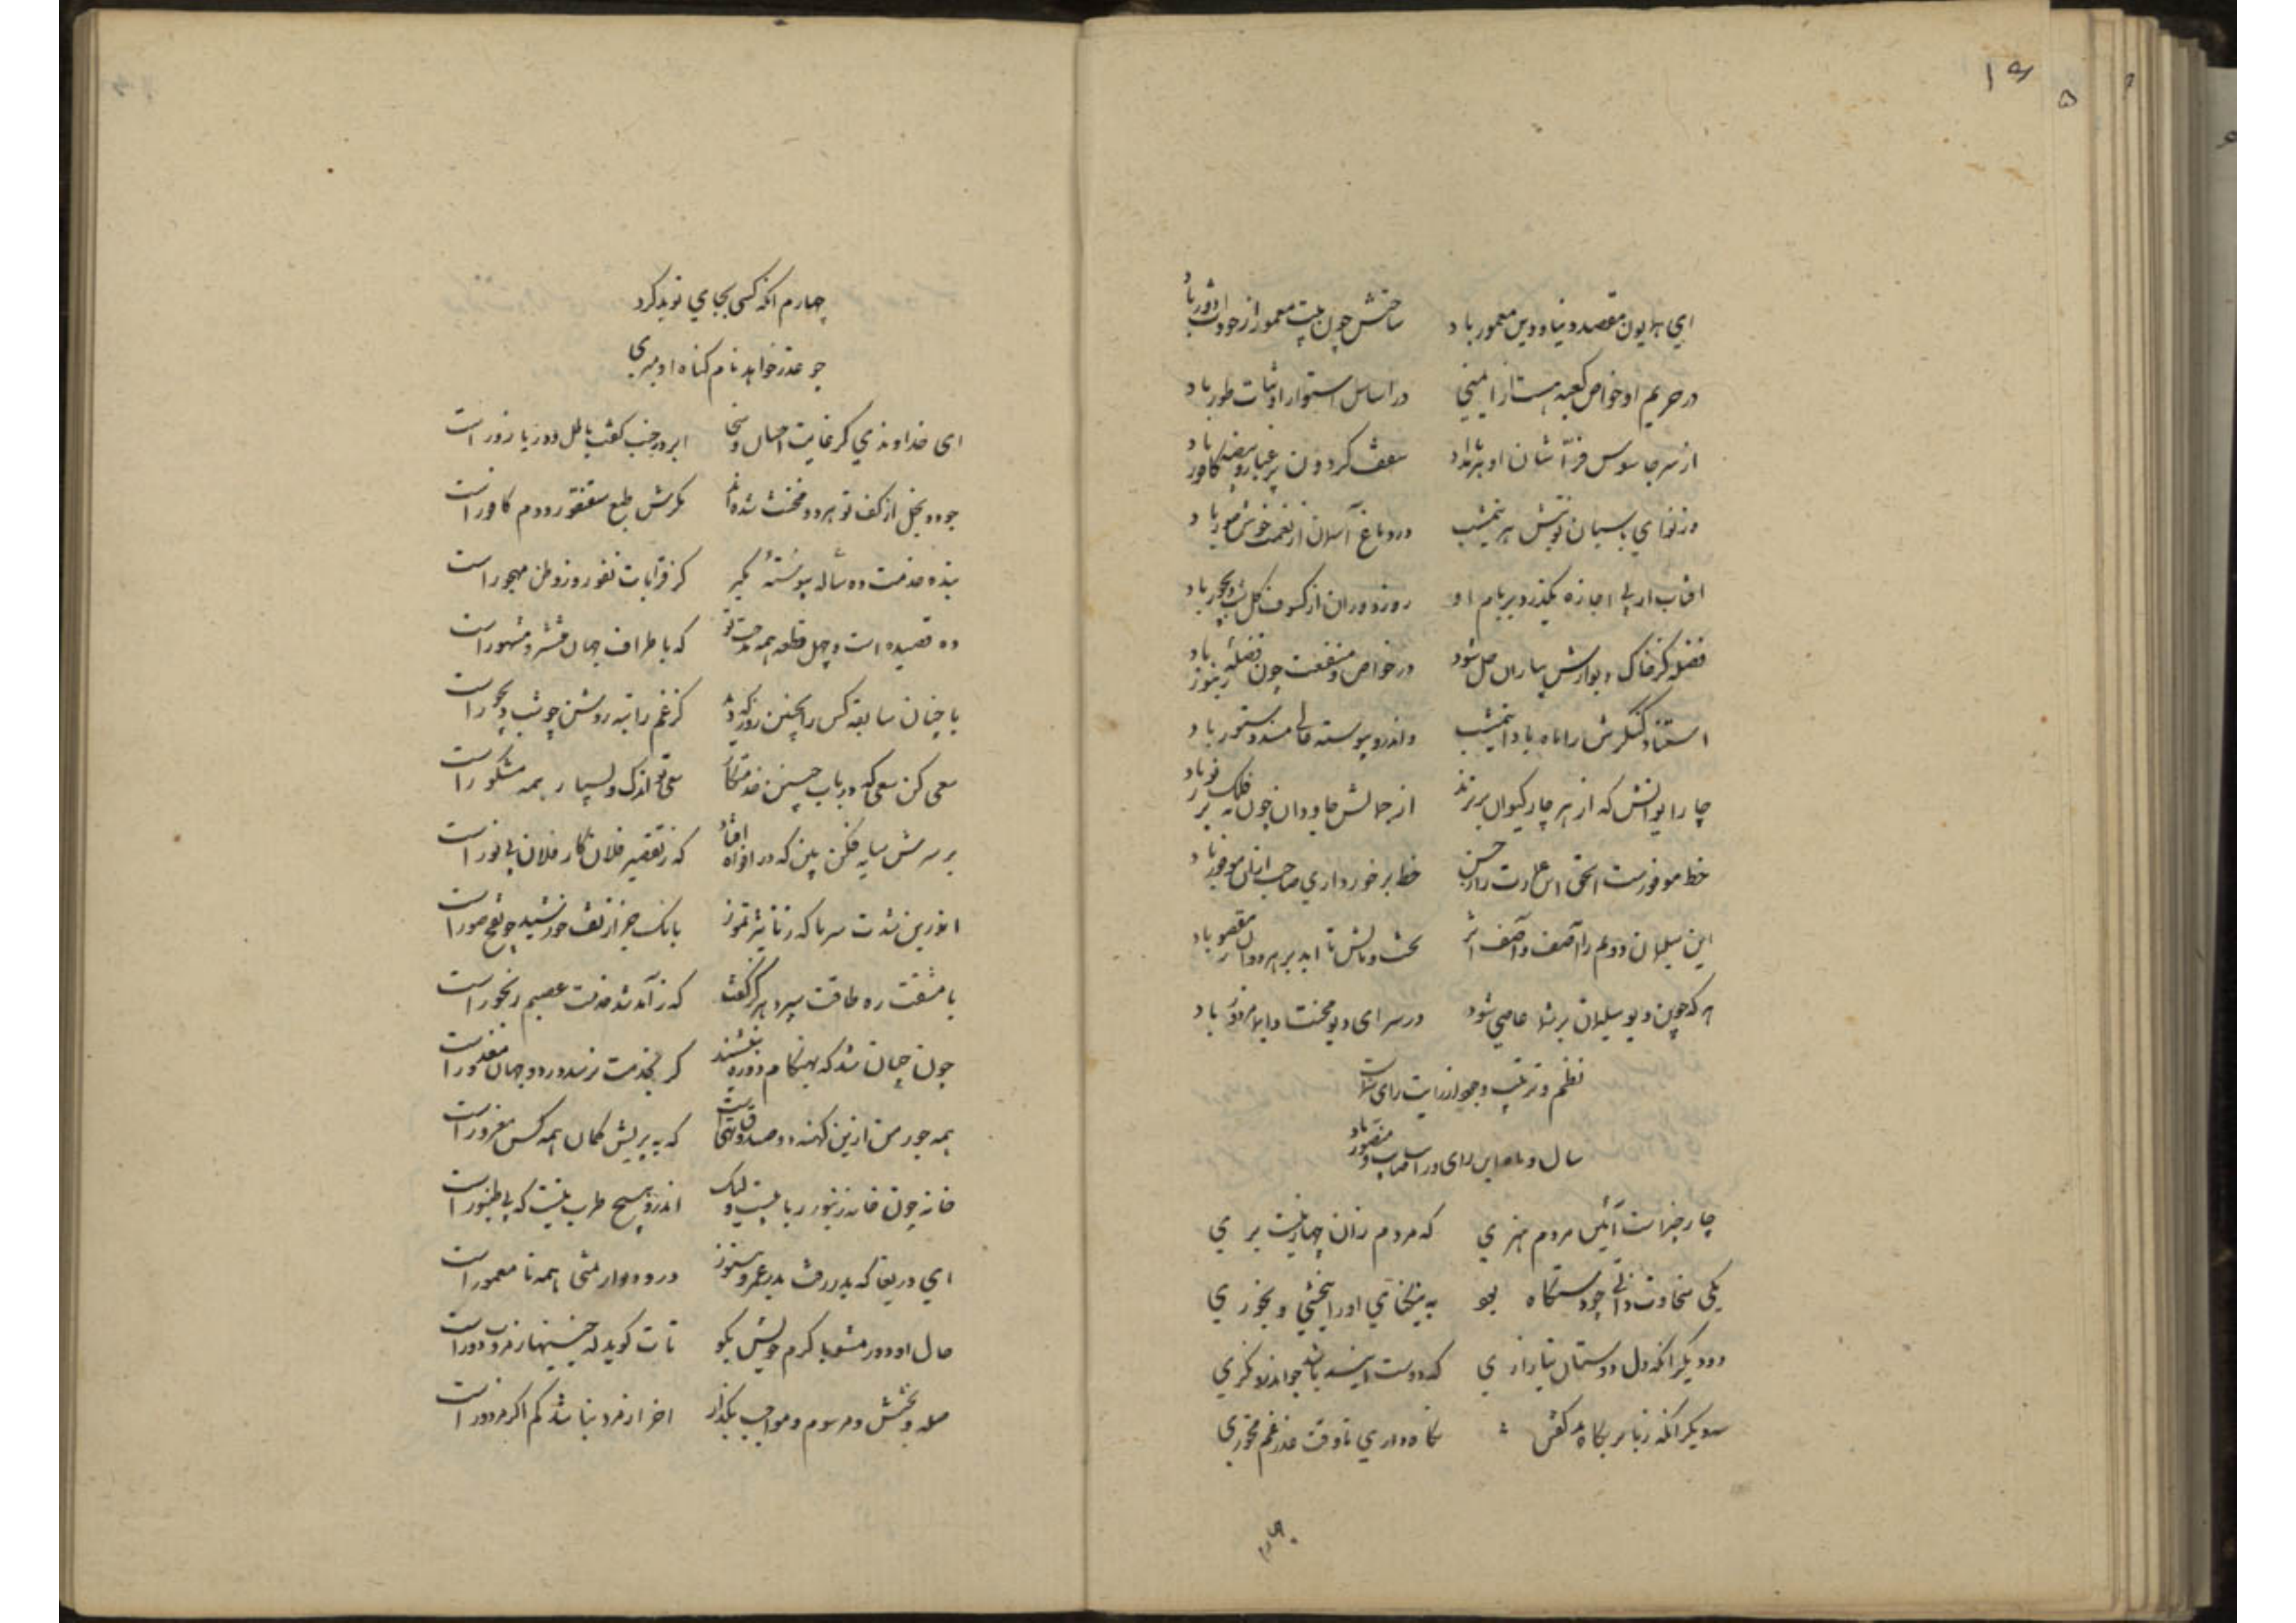 ۱۵
ای همایون مقصد دنیا و دین معمور باد ساحتش چون بیت معمور از حوادث دور باد
در حریم او خواص کعبه هست از ایمنی در اساس استوار او ثبات طور باد
از سر جاسوس فراشان او سقف گردون پر غبار بیضه کافور باد
وز نوای پاسبان نوبتش هر نیمشب در دماغ آسمان از نغمت خوش سور باد
افتاب ار بی اجازه بگذرد بر بام او روز دوران از کسوف کل شب دیجور باد
فضله کز خاک دیوارش بباران حل شود در خواص و منفعت چون فضله زنبور باد
واندرو پیوسته عالی مسند دستور باد
چار ایوانش که از هر چار کیوان برترند از جمالش جاودان چون نه فلک پر نور باد
حظ موفورست الحق این عمارت را ز حسن حظ برخورداری صاحب ازان موفور باد
این سلیمان دوم را آصف و آصف اثر تا ابد بر هر دوان مقصور باد
هر که چون دیو سلیمان بر شما عاصی شود در سرای دیو محنت دایما مزدور باد
نظم و ترتیب وجود از رایت رای شماست
سال و ماه این رای و رایت صاحب و منصور باد
چار چیز است آئین مردم هنری که مردم هنری زان چهار نیست بری
یکی سخاوت و رادی چو دستگاه بود به نیکنامی اورا ببخشی و بخوری
دو دیگر انکه دل دوستان نیازاری که دوست آینه باشد چو اندرو نگری
سدیگر انکه زبانرا بگاه گفتن نگاه داری تا وقت عذر غم نخوری
چهارم
چهارم انکه کسی بجای تو بد کرد
چو عذر خواهد نام گناه او نبری
ای خداوندی کز غایت احسان و سخا ابر در جنب کفت باطل و دریا زور است
جود و بخل از کف تو هر دو مخنث شده‌اند مکرش طبع سقنقور و دم کافور است
بنده خدمت ده ساله پیوسته مگیر کز قرابات نفور و ز وطن مهجور است
ده قصیده است و چهل قطعه همه مدحت تو که باطراف جهان منتشر و مشهور است
با چنان سابقه کس را بچنین روز که دید کز غم راتبه روشن چو شب دیجور است
سعی کن سعی که در باب چنین خدمتکار سعی تو اندک و بسیار همه مشکور است
بر سرش سایه فکن بین که در افواه افتاد که ز تقصیر فلان کار فلان بی نور است
اندرین شدت سرما که ز تاثیر تموز بانک خیز از تف خورشید چو نفخ صور است
با مشقت ره طاقت سپرد هرگز گفت که ز آمد شد خدمت رنجور است
چون چنان شد که بهنگام دوره بنشیند گر بخدمت نرسد در دو جهان معذور است
همه جور من ازین کهنه دو صندوق تهی است که به پریش گمان همه کس مغرور است
خانه چون خانه زنبور ربا نیست و لیک اندرو هیچ طرب نیست که بی طنبور است
ای دریغا که پدر رفت پدر عمرو هنوز در و دیوار مثنی همه نا معمور است
حال او دور مشو با کرم خویش بگو تات گوید که چنینها ز مروت دور است
صله و بخشش و مرسوم و مواجب بگذار اخر از مرد بنا شد کم اگر مزدور است